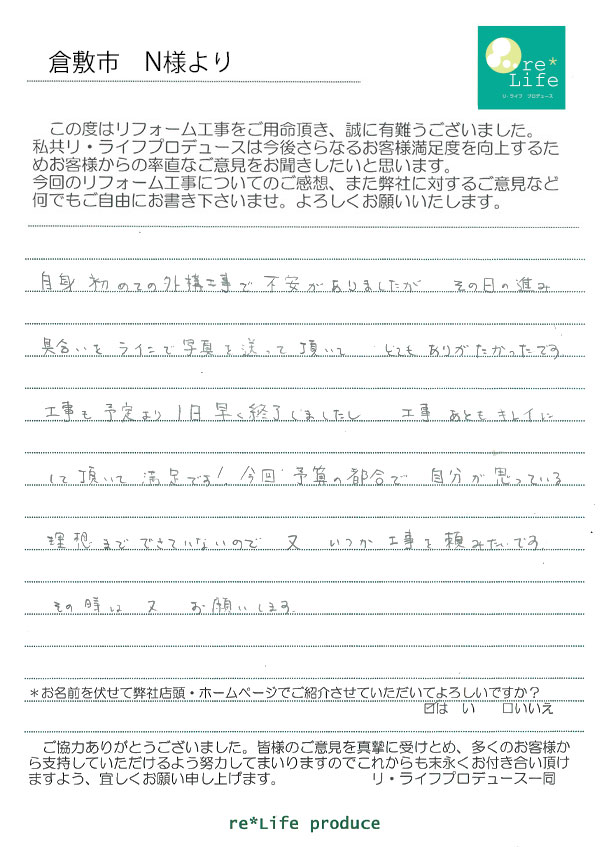 倉敷市　N様より
re*
Life
リ・ライフ　プロデュース
この度はリフォーム工事をご用命頂き、誠に有難うございました。
私共リ・ライフプロデュースは今後さらなるお客様満足度を向上するた
めお客様からの率直なご意見をお聞きしたいと思います。
今回のリフォーム工事についてのご感想、また弊社に対するご意見など
何でもご自由にお書き下さいませ。よろしくお願いいたします。
自身 初めての外構工事で 不安がありましたが その日の進み
具合いを ラインで写真を送って頂いて とてもありがたかったです
工事も予定より1日早く終了しましたし 工事 あともキレイに
して頂いて 満足です！ 今回 予算の都合で 自分が思っている
理想まで できていないので 又 いつか工事を頼みたいです。
その時は 又 お願いします。
＊お名前を伏せて弊社店頭・ホームページでご紹介させていただいてよろしいですか？
☑はい　□いいえ
ご協力ありがとうございました。皆様のご意見を真摯に受けとめ、多くのお客様か
ら支持していただけるよう努力してまいりますのでこれからも末永くお付き合い頂け
ますよう、宜しくお願い申し上げます。　リ・ライフプロデュース一同
re*Life produce